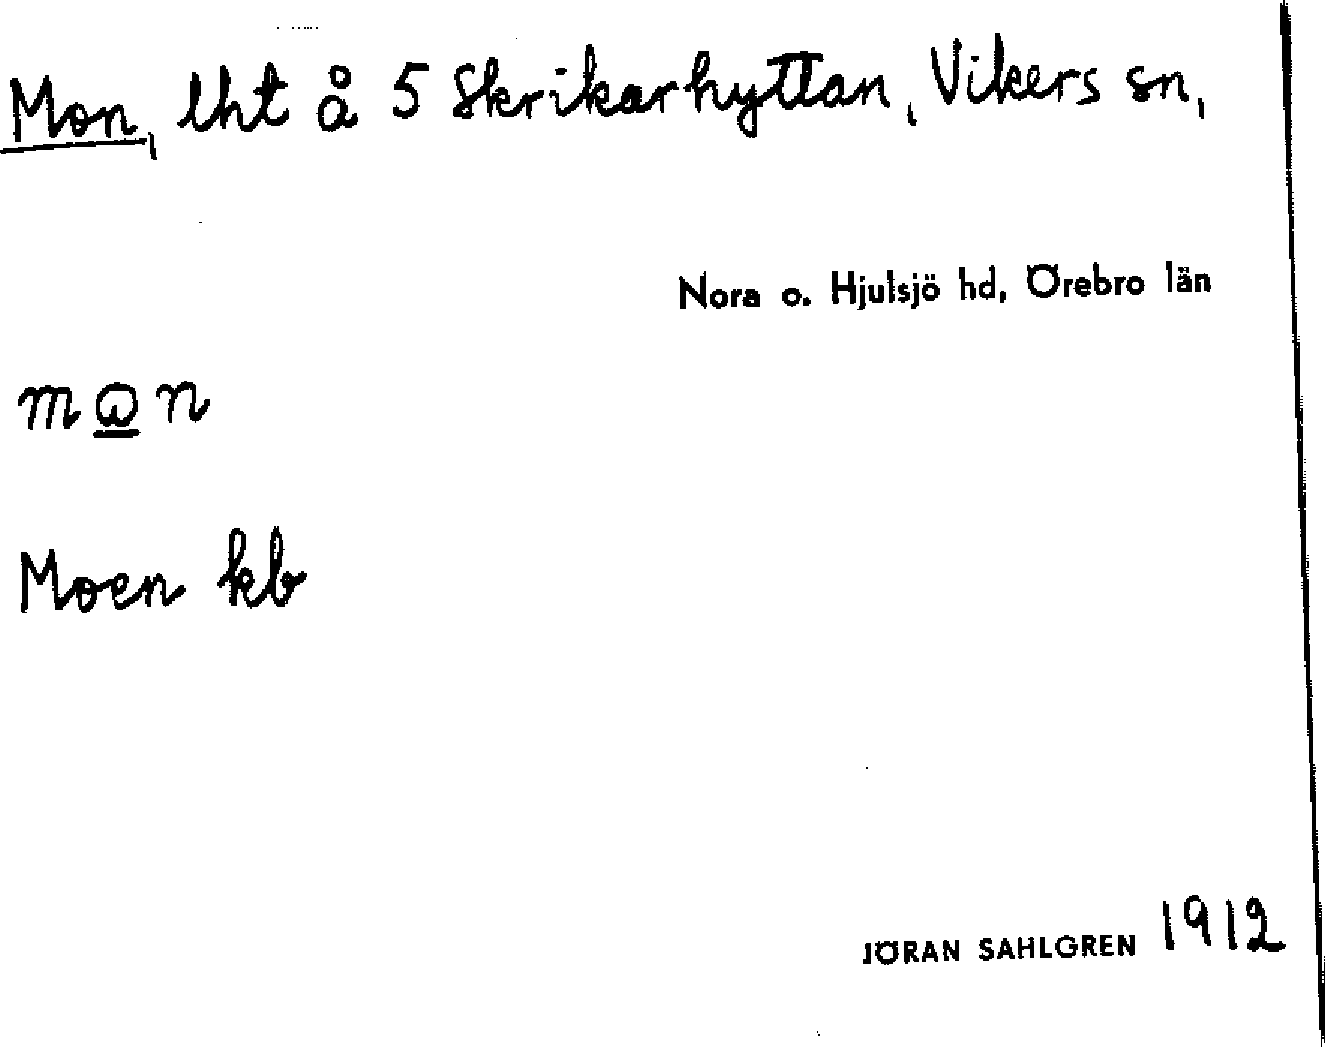 Mon, lht å 5 Skrikarhyttan, Vikers sn,
Nora o. Hjulsjö hd, Örebro län
mꞷ̲n
Moen kb
JÖRAN SAHLGREN 1912